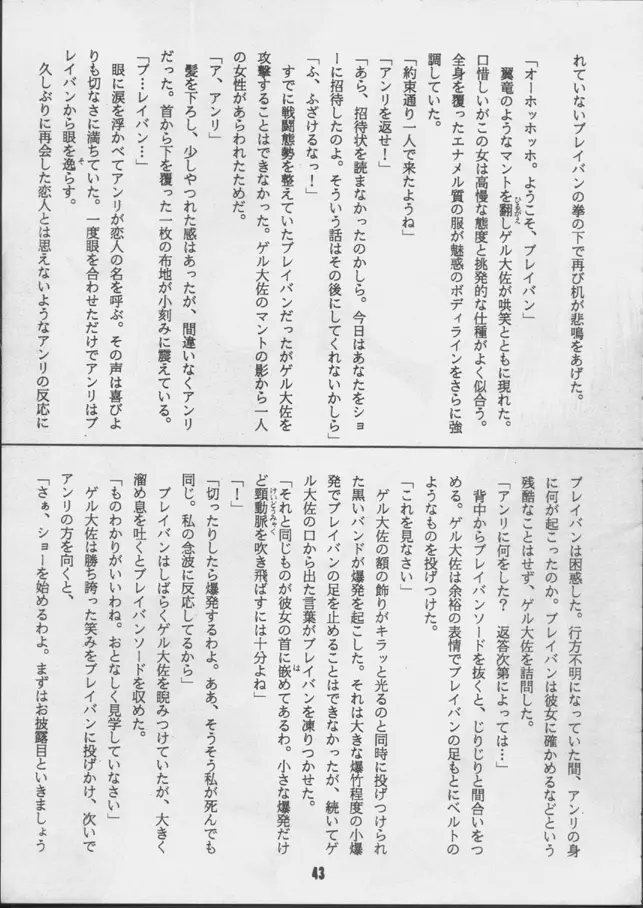 れていないブレイバンの拳の下で再び机が悲鳴をあげた。
「オーホッホッホ。ようこそ、ブレイバン」
翼竜のようなマントを翻しゲル大佐が哄笑とともに現れた。
ひるがえ
口惜しいがこの女は高慢な態度と挑発的な仕種がよく似合う。
全身を覆ったエナメル質の服が魅惑のボディラインをさらに強
調していた。
「約束通り一人で来たようね」
「アンリを返せ！」
「あら、招待状を読まなかったのかしら。今日はあなたをショ
ーに招待したのよ。そういう話はその後にしてくれないかしら」
「ふ、ふざけるなっ！」
すでに戦闘態勢を整えていたブレイバンだったがゲル大佐を
攻撃することはできなかった。ゲル大佐のマントの影から一人
の女性があらわれたためだ。
「ア、アンリ」
髪を下ろし、少しやつれた感はあったが、間違いなくアンリ
だった。首から下を覆った一枚の布地が小刻みに震えている。
「ブ…レイバン…」
眼に涙を浮かべてアンリが恋人の名を呼ぶ。その声は喜びよ
りも切なさに満ちていた。一度眼を合わせただけでアンリはブ
レイバンから眼を逸らす。
そ
久しぶりに再会した恋人とは思えないようなアンリの反応に
ブレイバンは困惑した。行方不明になっていた間、アンリの身
に何が起こったのか。ブレイバンは彼女に確かめるなどという
残酷なことはせず、ゲル大佐を詰問した。
「アンリに何をした？　返答次第によっては…」
背中からブレイバンソードを抜くと、じりじりと間合いをつ
める。ゲル大佐は余裕の表情でブレイバンの足もとにベルトの
ようなものを投げつけた。
「これを見なさい」
ゲル大佐の額の飾りがキラッと光るのと同時に投げつけられ
た黒いバンドが爆発を起こした。それは大きな爆竹程度の小爆
発でブレイバンの足を止めることはできなかったが、続いてゲ
ル大佐の口から出た言葉がブレイバンを凍りつかせた。
「それと同じものが彼女の首に嵌めてあるわ。小さな爆発だけ
は
ど頸動脈を吹き飛ばすには十分よね」
けいどうみゃく
「！」
「切ったりしたら爆発するわよ。ああ、そうそう私が死んでも
同じ。私の念波に反応してるから」
ブレイバンはしばらくゲル大佐を睨みつけていたが、大きく
溜め息を吐くとブレイバンソードを収めた。
「ものわかりがいいわね。おとなしく見学していなさい」
ゲル大佐は勝ち誇った笑みをブレイバンに投げかけ、次いで
アンリの方を向くと、
「さぁ、ショーを始めるわよ。まずはお披露目といきましょう
43